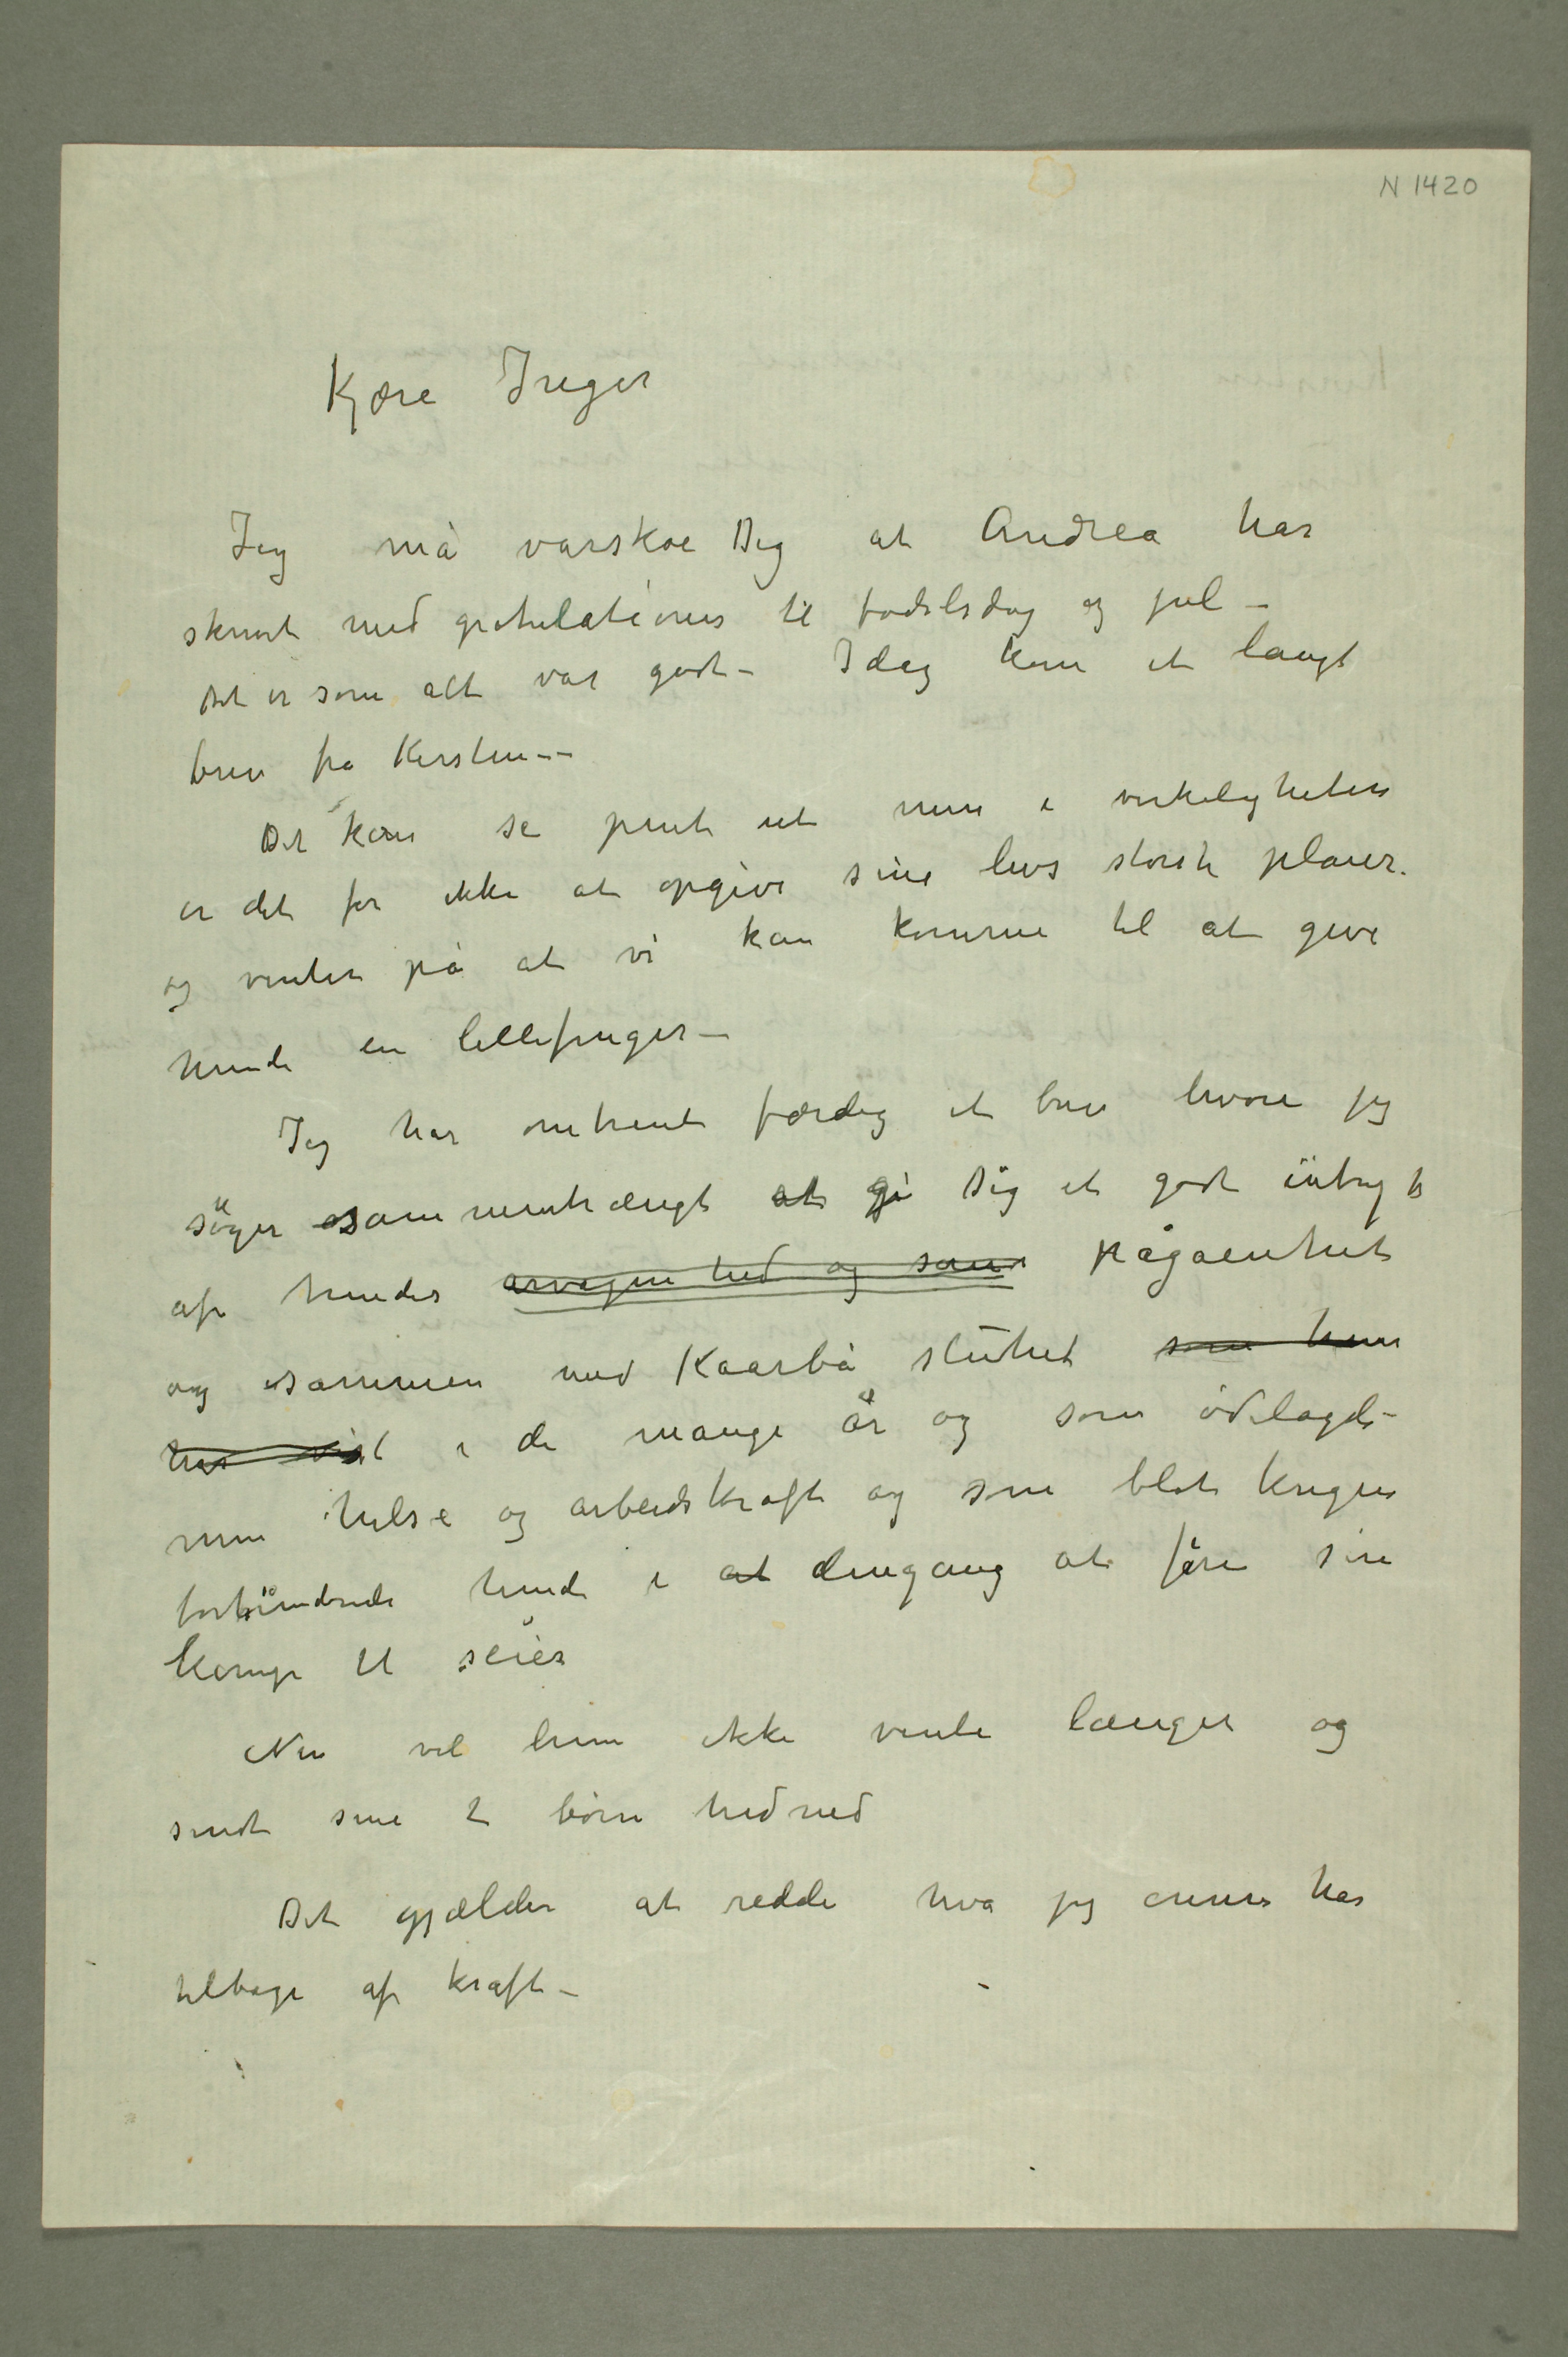 N 1420
Kjære Inger
Jeg må varskoe Dig at Andrea har
skrevet med gratulationer til fødselsdag og jul –
Det er som alt var godt – Idag kom et langt
brev fra Kirsten – –
Det kan se pent ut men i virkeligheten
er det for ikke at opgive sine livs største planer.
og venter på at vi kan komme til at give
hende en lillefinger –
Jeg har omtrent færdig et brev hvori jeg
söger sammentrængt at gi Dig et godt intryk
af hendes pågåenhet
og sammen med Kaarbø sluhet som hun
har vist i de mange år og som ødelagde
min helse og arbeidskraft og som blot krigen
forhindrede hende i at dengang at føre sin
kamp til seier
Nu vil hun ikke vente længer og
sendt sine to börn hid ned
Det gjælder at redde hva jeg ennu har
tilbage af kraft –